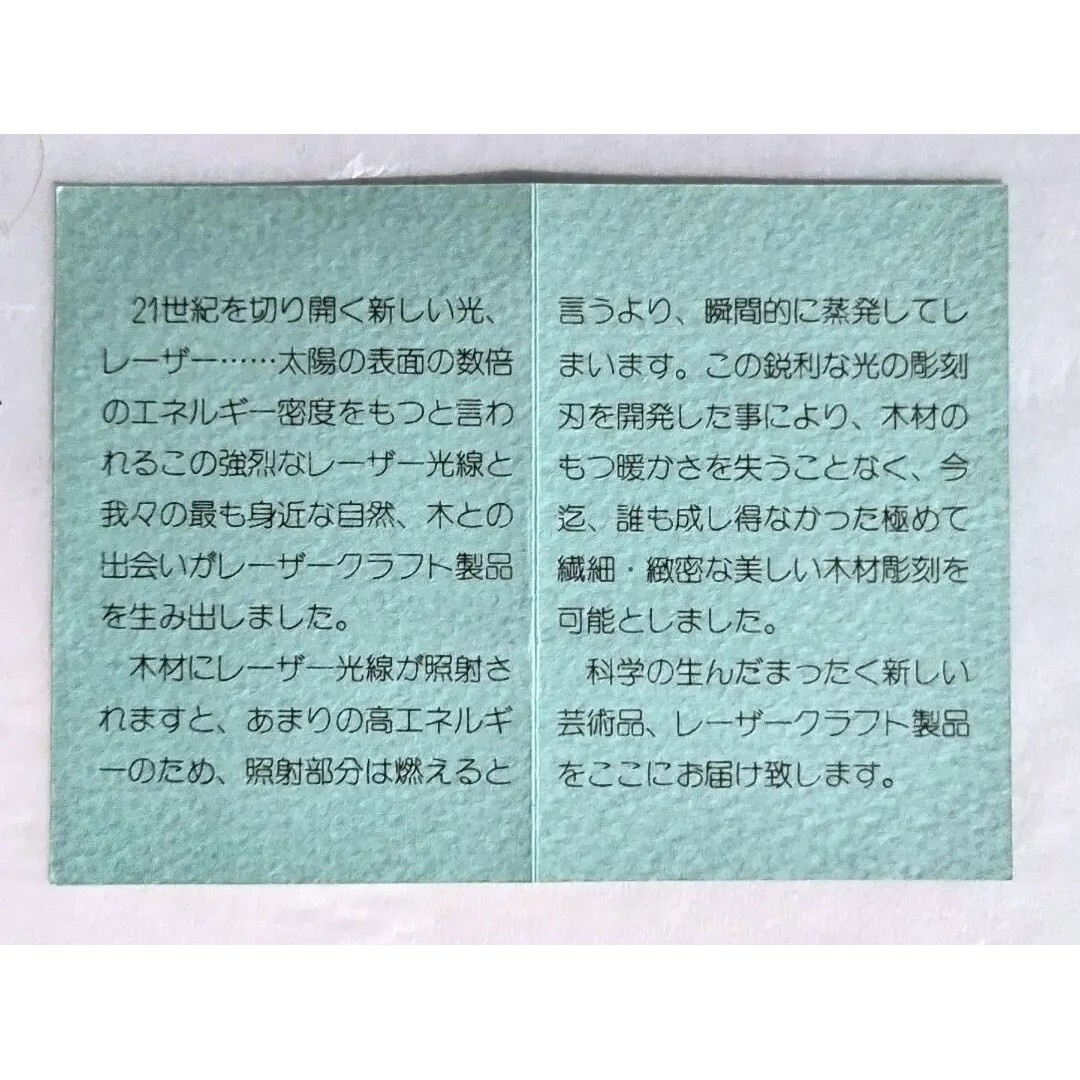 21世紀を切り開く新しい光、
レーザー……太陽の表面の数倍
のエネルギー密度をもつと言わ
れるこの強烈なレーザー光線と
我々の最も身近な自然、木との
出会いがレーザークラフト製品
を生み出しました。
木材にレーザー光線が照射さ
れますと、あまりの高エネルギ
ーのため、照射部分は燃えると
言うより、瞬間的に蒸発してし
まいます。この鋭利な光の彫刻
刃を開発した事により、木材の
もつ暖かさを失うことなく、今
迄、誰も成し得なかった極めて
繊細・緻密な美しい木材彫刻を
可能としました。
科学の生んだまったく新しい
芸術品、レーザークラフト製品
をここにお届け致します。